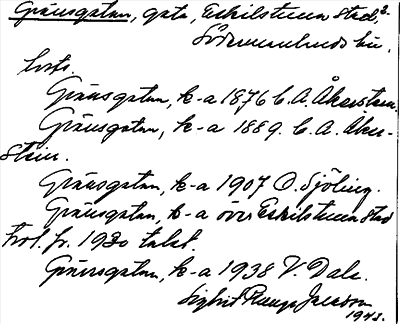 Gränsgatan, gata, Eskilstuna stad,
Södermanlands län.
Gränsgatan, k-a 1876 C. A. Åkerstein.
Gränsgatan, k-a 1889. C. A. Åker-
stein.
Gränsgatan, k-a 1907 O. Sjöling.
Gränsgatan, k-a över Eskilstuna stad
trol. fr. 1920 talet.
Gränsgatan, k-a 1938 V. Dahl.
Sigbrit
1943.